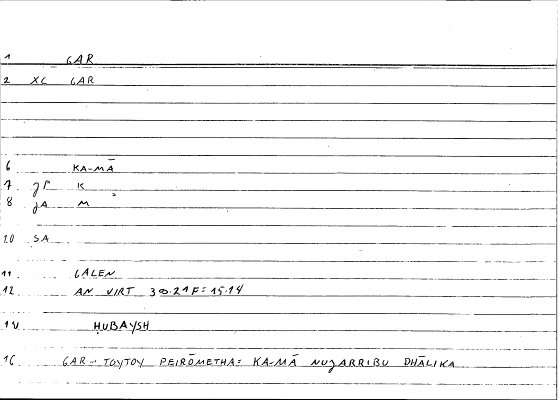 1 GAR
2 XC GAR
6 KA-MĀ
7 JP K
8 JA M
10 SA
11 GALEN
12 AN VIRT 30.21F=15.14
14 ḤUBAYSH
16 GAR - TOYTOY PEIRŌMETHA= KA-MĀ NUJARRIBU DHĀLIKA